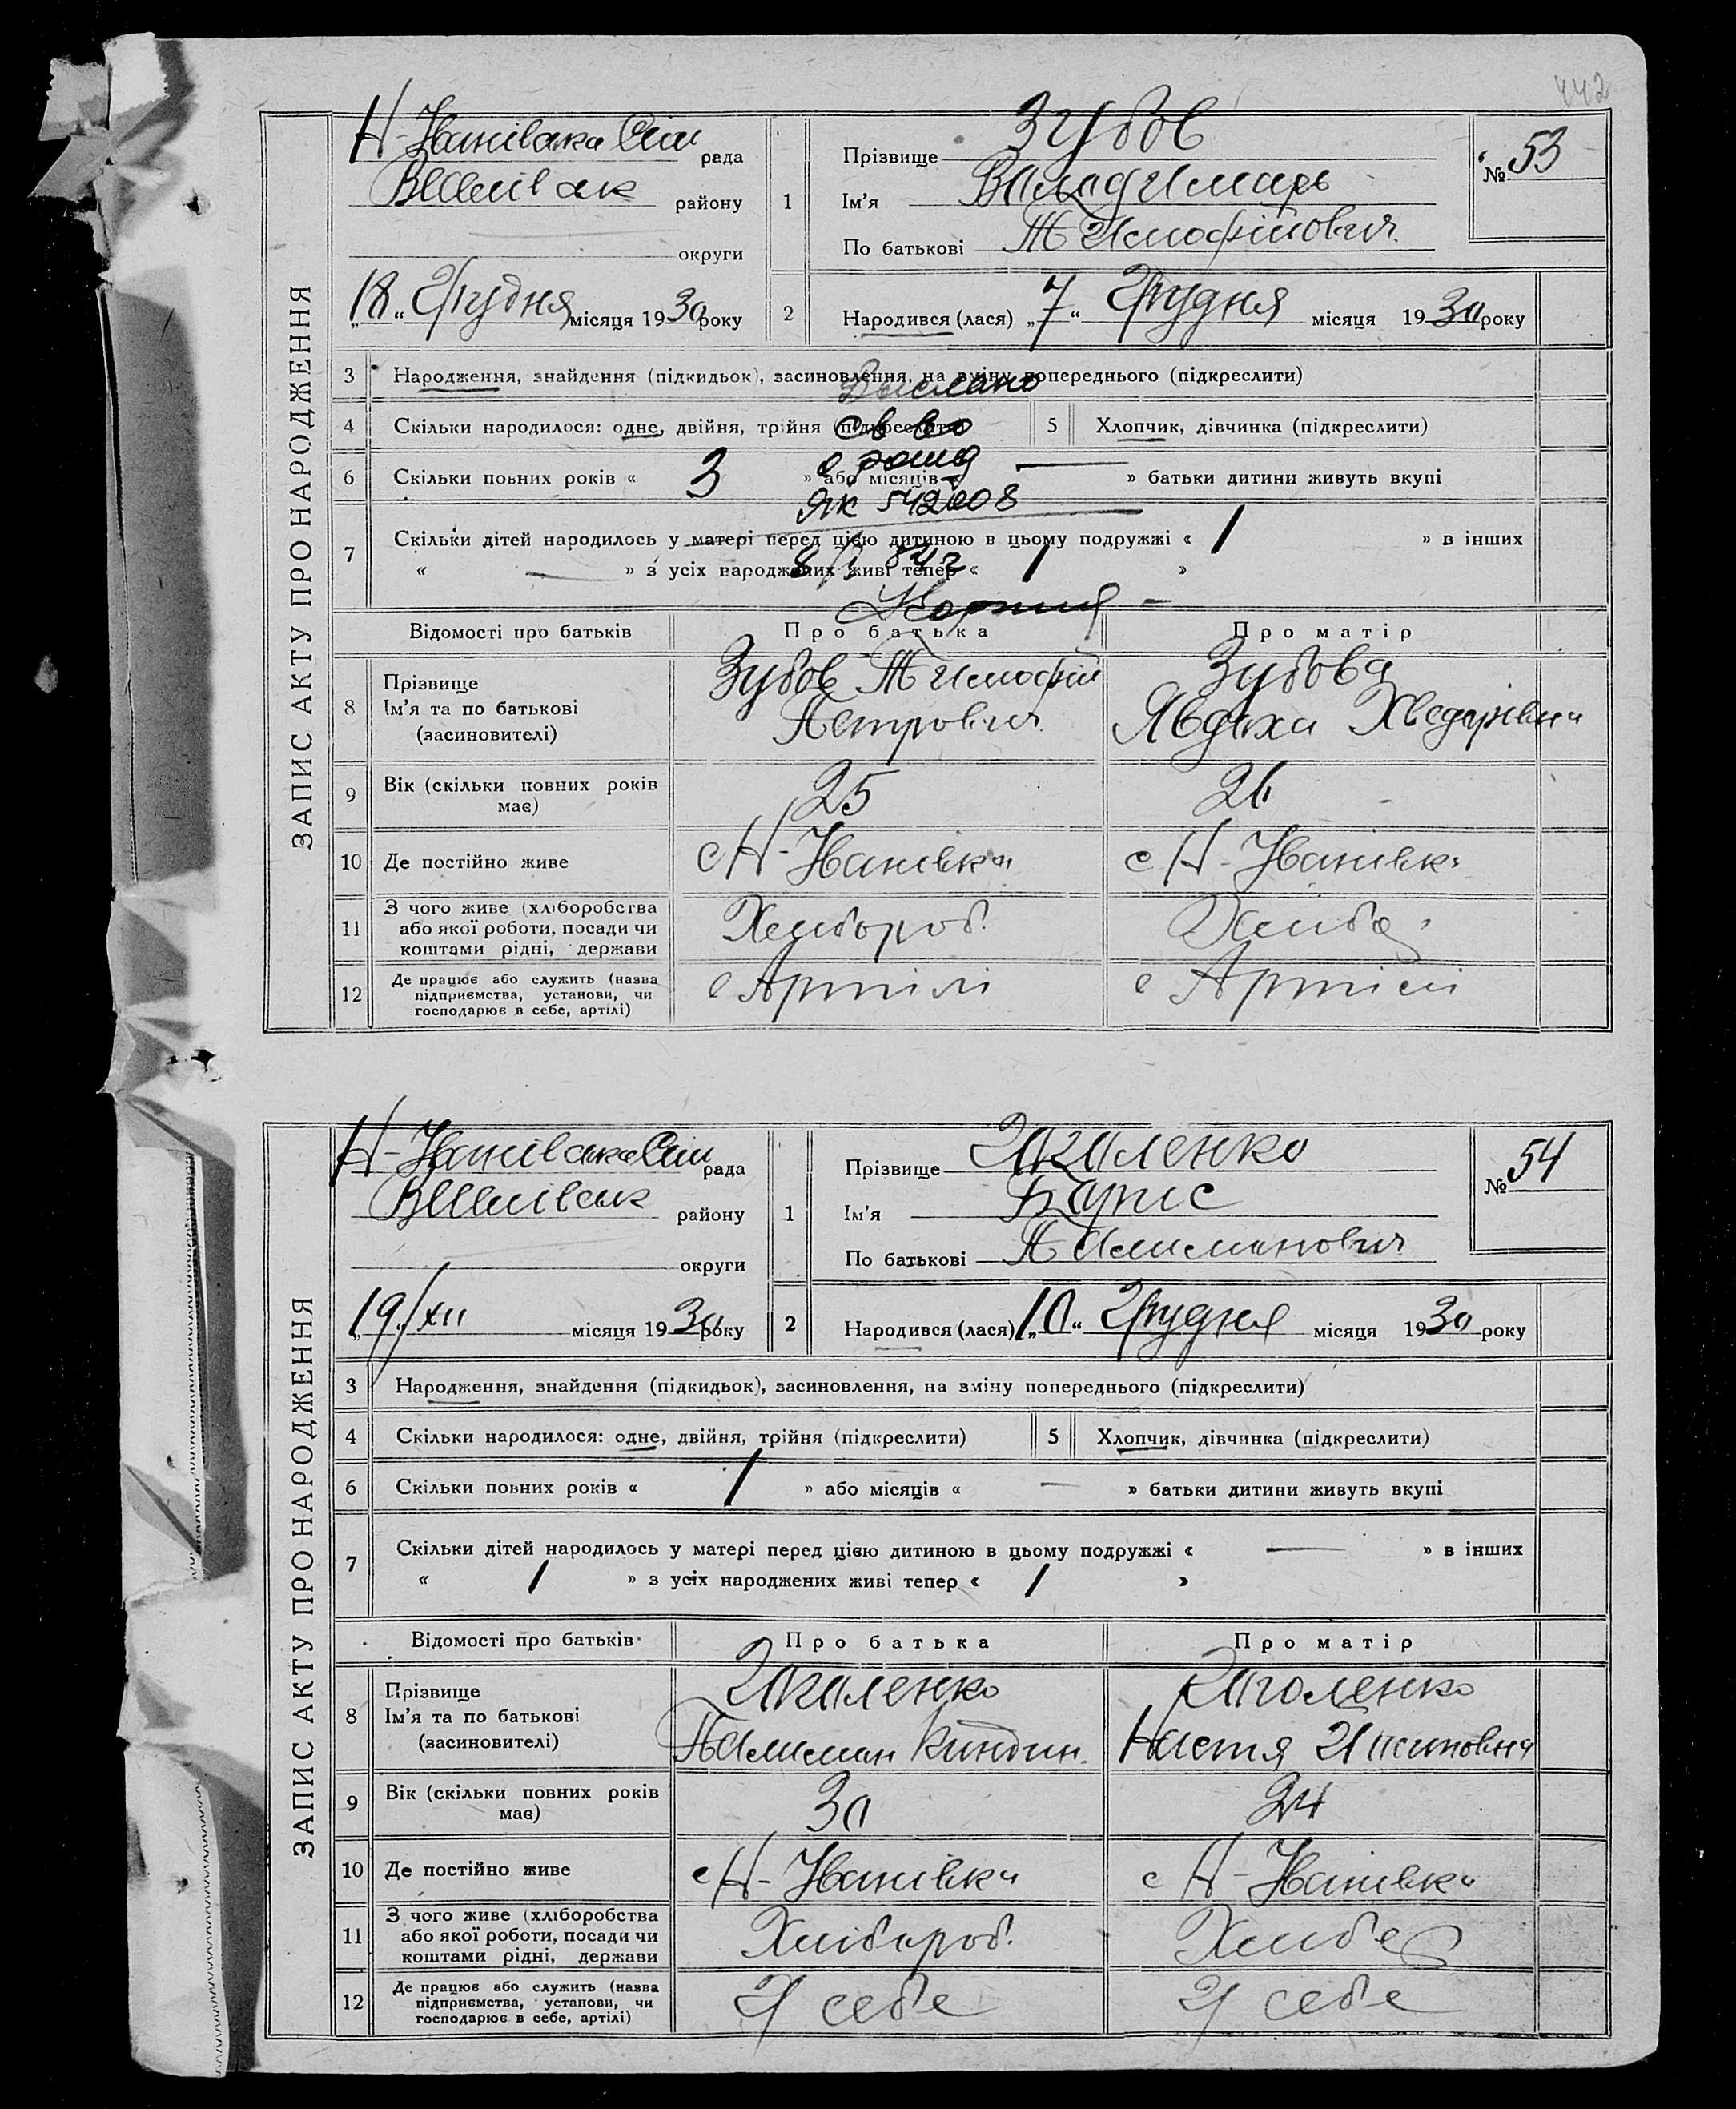 442
ЗАПИС АКТУ ПРО НАРОДЖЕННЯ
Н-Іванівська Сіль рада
району
округи
„18“ Грудня місяця 1930 року
1
Прізвище Зубов
Ім'я Володимирь
По батькові Тимофійович
№ 53
2
Народився (лася) „7“ Грудня місяця 1930 року
3 Народження, знайдення (підкидьок), засиновлення, на зміну попереднього (підкреслити)
Выслано
4 Скільки народилося: одне, двійня, трійня (підкреслити) 5 Хлопчик, дівчинка (підкреслити)
св во
6 Скільки повних років « 3 » або місяців « — » батьки дитини живуть вкупі
о рожд
ЯК 542608
7 Скільки дітей народилось у матері перед цією дитиною в цьому подружжі « 1 » в інших
« — » з усіх народжених живі тепер « 1 »
Відомості про батьків Про батька Про матір
8 Прізвище
Ім'я та по батькові
(засиновителі)
Зубов Тимофій
Петрович
Зубова
Явдоха Хведорівна
9 Вік (скільки повних років має) 25 26
10 Де постійно живе с Н-Іванівка с Н-Іванівка
11 З чого живе (хліборобства
або якої роботи, посади чи
коштами рідні, держави
Хлібороб. Хлібо
12 Де працює або служить (назва
підприємства, установи, чи
господарює в себе, артілі)
в Артілі в Артілі
ЗАПИС АКТУ ПРО НАРОДЖЕННЯ
Н-Іванівська Сіль рада
району
округи
„19/XII місяця 1930 року
1
Прізвище Заголенко
Ім'я Борис
По батькові
№ 54
2
Народився (лася) „10“ Грудня місяця 1930 року
3 Народження, знайдення (підкидьок), засиновлення, на зміну попереднього (підкреслити)
4 Скільки народилося: одне, двійня, трійня (підкреслити) 5 Хлопчик, дівчинка (підкреслити)
6 Скільки повних років « 1 » або місяців « — » батьки дитини живуть вкупі
7 Скільки дітей народилось у матері перед цією дитиною в цьому подружжі « — » в інших
« 1 » з усіх народжених живі тепер « 1 »
Відомості про батьків Про батька Про матір
8 Прізвище
Ім'я та по батькові
(засиновителі)
Заголенко
Заголенко
Настя
9 Вік (скільки повних років має) 30 24
10 Де постійно живе с Н-Іванівка с Н-Іванівка
11 З чого живе (хліборобства
або якої роботи, посади чи
коштами рідні, держави
Хлібороб. Хлібо
12 Де працює або служить (назва
підприємства, установи, чи
господарює в себе, артілі)
У себе У себе